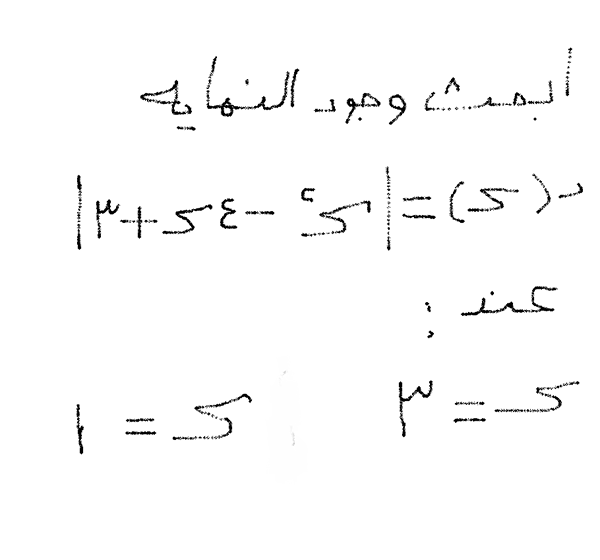 ابحث وجود النهايه
د(س) = |س٢ - ٤س + ٣|
عند :
س = ٣ س = ١